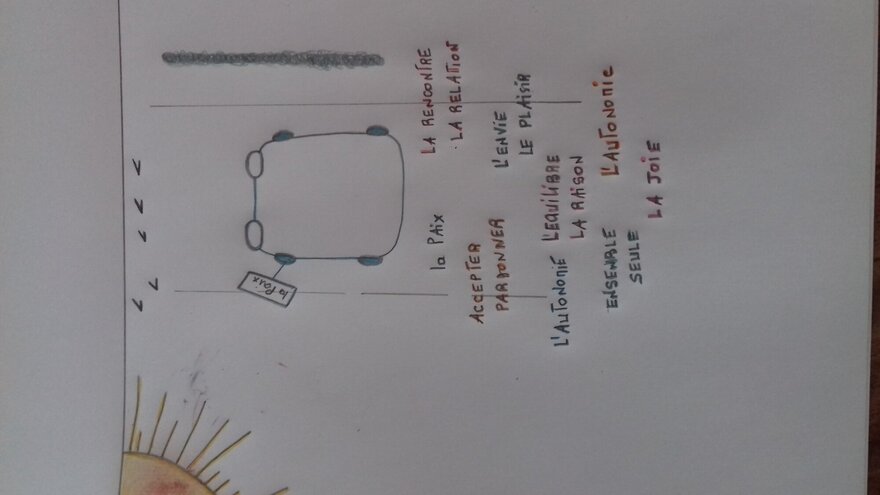 la Paix
la PAIX
LA RENCONTRE
. LA RELATION
ACCEPTER
PARDONNER
L'ENVIE
LE PLAISIR
L'AUTONOMIE
L'EQUILIBRE
LA RAISON
ENSEMBLE
SEULE
L'AUTONOMIE
LA JOIE